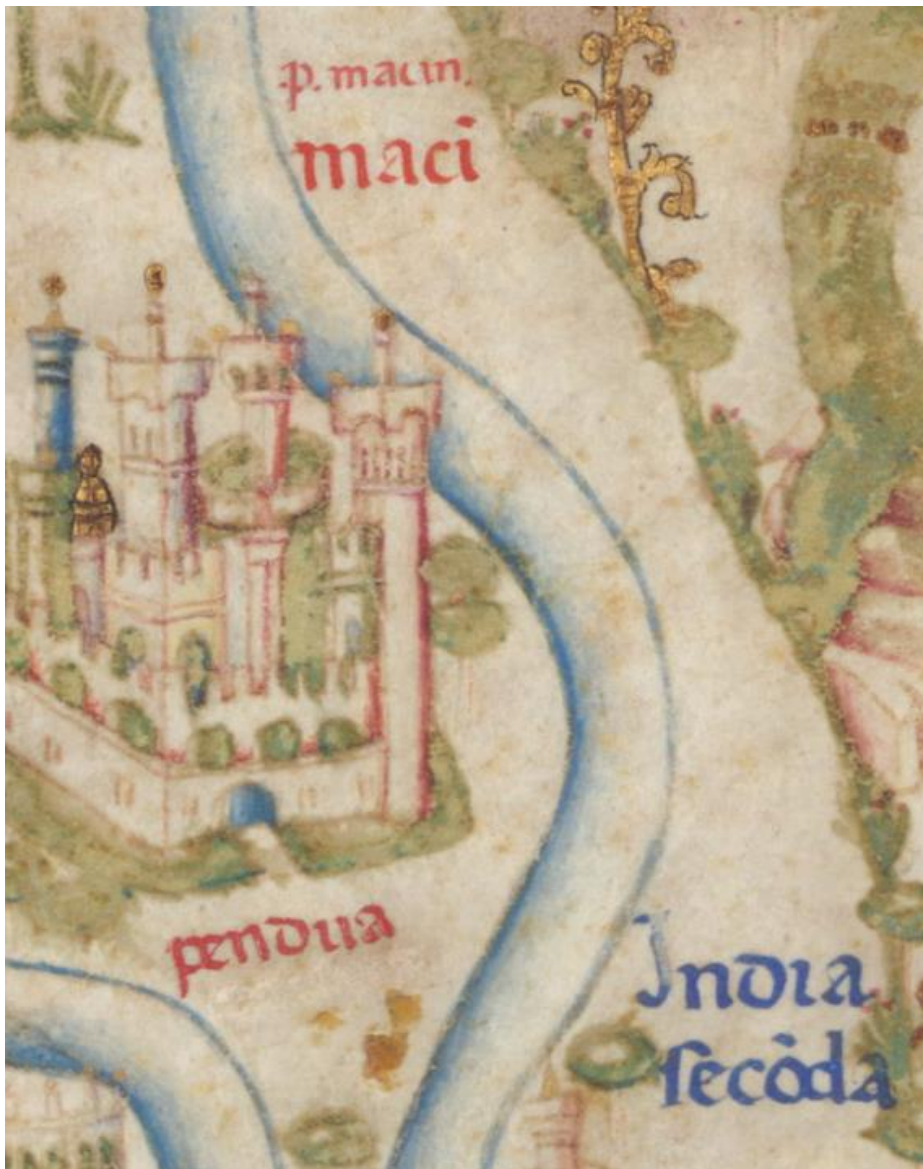 .p. macin.
macī
pendua
India
secōda